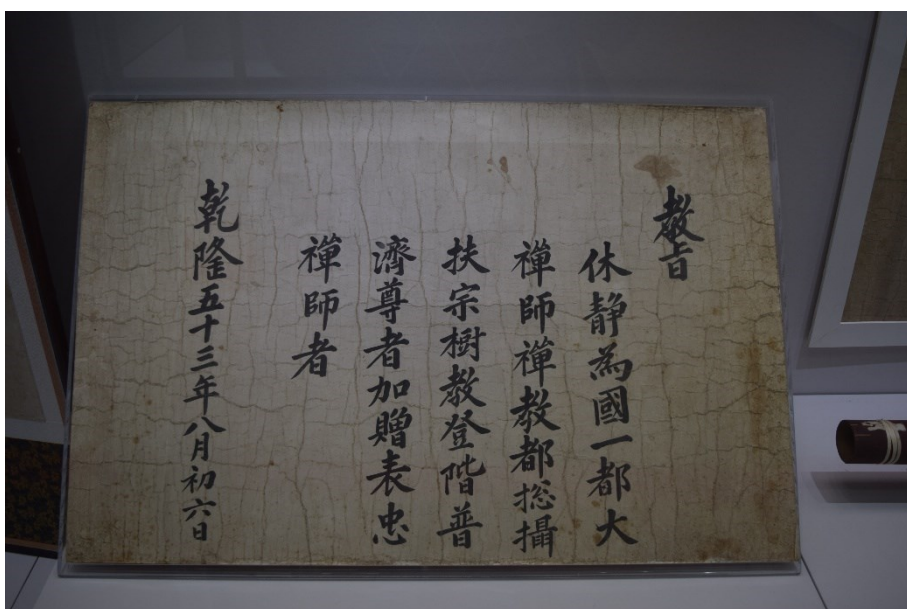 教旨
休静為國一都大
禪師禪教都摠攝
扶宗樹教登階普
濟尊者加贈表忠
禪師者
乾隆五十三年八月初六日